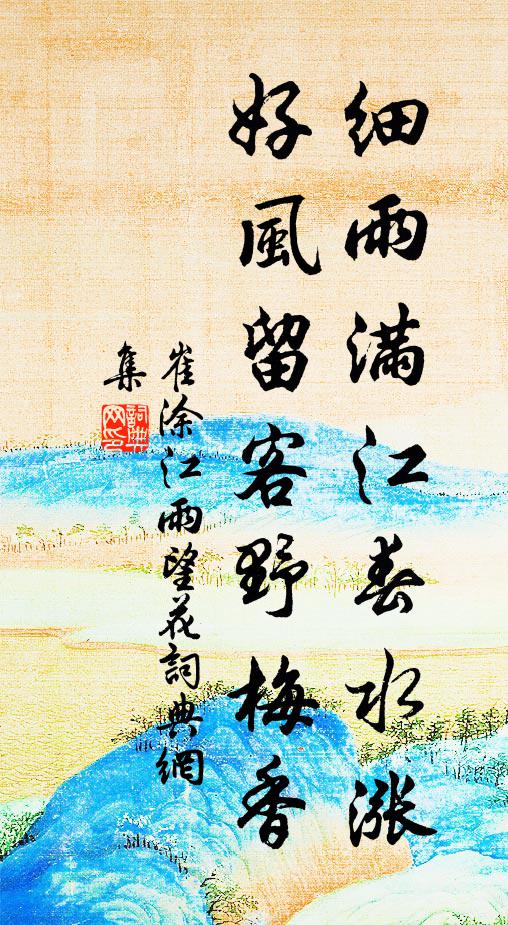 细雨满江春水漲
好風留客野梅香
崔涂江雨望花詞典網
集
詞典
网印